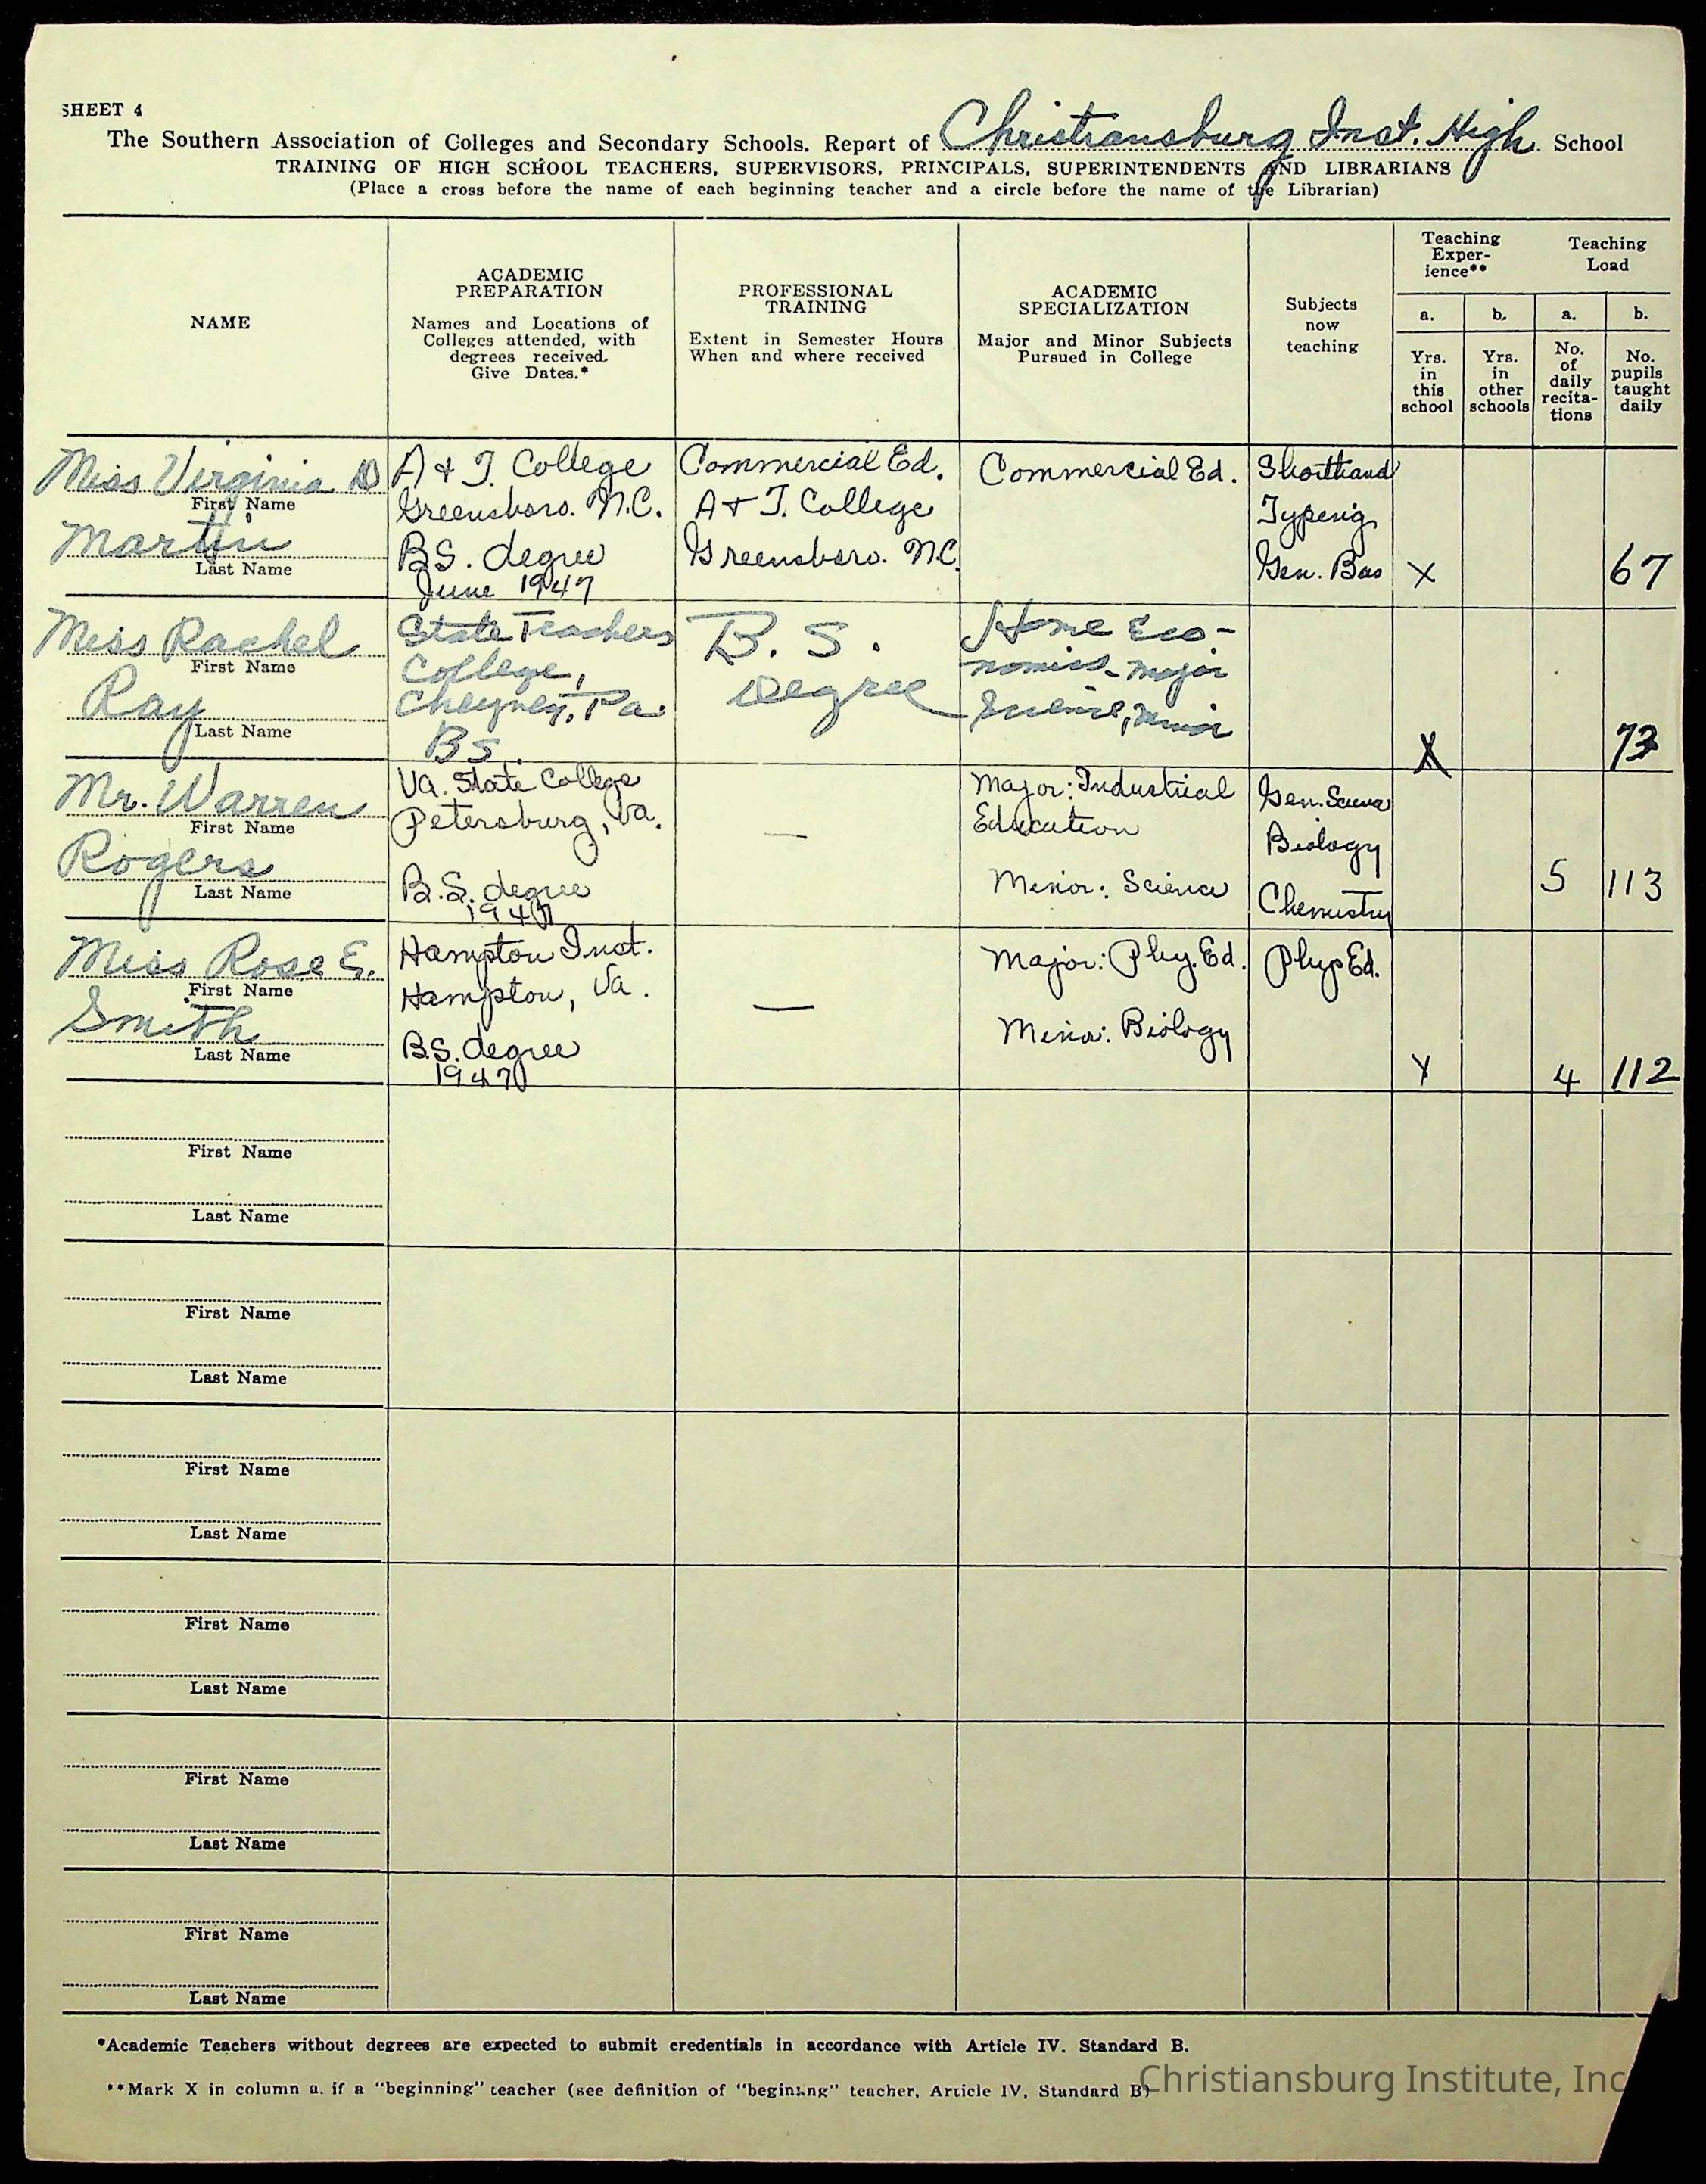 SHEET 4
The Southern Association of Colleges and Secondary Schools. Report of Christiansburg Inst. High School
TRAINING OF HIGH SCHOOL TEACHERS, SUPERVISORS, PRINCIPALS, SUPERINTENDENTS AND LIBRARIANS
(Place a cross before the name of each beginning teacher and a circle before the name of the Librarian)
NAME
ACADEMIC
PREPARATION
Names and Locations of
Colleges attended, with
degrees received.
Give Dates.*
PROFESSIONAL
TRAINING
Extent in Semester Hours
When and where received
ACADEMIC
SPECIALIZATION
Major and Minor Subjects
Pursued in College
Subjects
now
teaching
Teaching
Exper-
ience**
a.
Yrs.
in
this
school
b.
Yrs.
in
other
schools
Teaching
Load
a.
No.
of
daily
recita-
tions
b.
No.
pupils
taught
daily
Miss Virginia D
First Name
Martin
Last Name
A & T. College
Greensboro. N.C.
BS. degree
June 1947
Commercial Ed.
A & T. College
Greensboro. N.C.
Commercial Ed.
Shorthand
Typing
Gen. Bus
X
67
Miss Rachel
First Name
Ray
Last Name
State Teachers
College,
Cheyney, Pa.
BS.
B. S.
Degree
Home Eco-
nomics - Major
Science, Minor
X
73
Mr. Warren
First Name
Rogers
Last Name
Va. State College
Petersburg, Va.
B.S. degree
1947
—
Major: Industrial
Education
Minor: Science
Gen. Science
Biology
Chemistry
5
113
Miss Rose E.
First Name
Smith
Last Name
Hampton Inst.
Hampton, Va.
B.S. degree
1947
—
Major: Phy. Ed.
Minor: Biology
Phys Ed.
X
4
112
First Name
Last Name
First Name
Last Name
First Name
Last Name
First Name
Last Name
First Name
Last Name
First Name
Last Name
*Academic Teachers without degrees are expected to submit credentials in accordance with Article IV. Standard B.
**Mark X in column a. if a "beginning" teacher (see definition of "beginning" teacher, Article IV, Standard B)
Christiansburg Institute, Inc